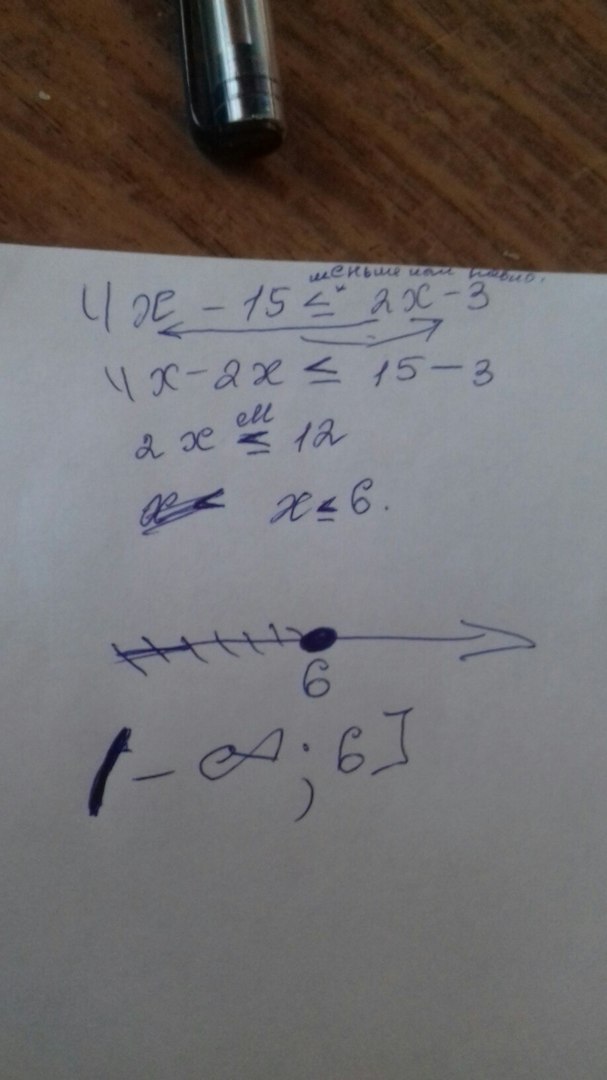 меньше или равно.
4x - 15 ≤ 2x - 3
4x - 2x ≤ 15 - 3
2x ≤ 12
x ≤ 6.
6
(-∞; 6]